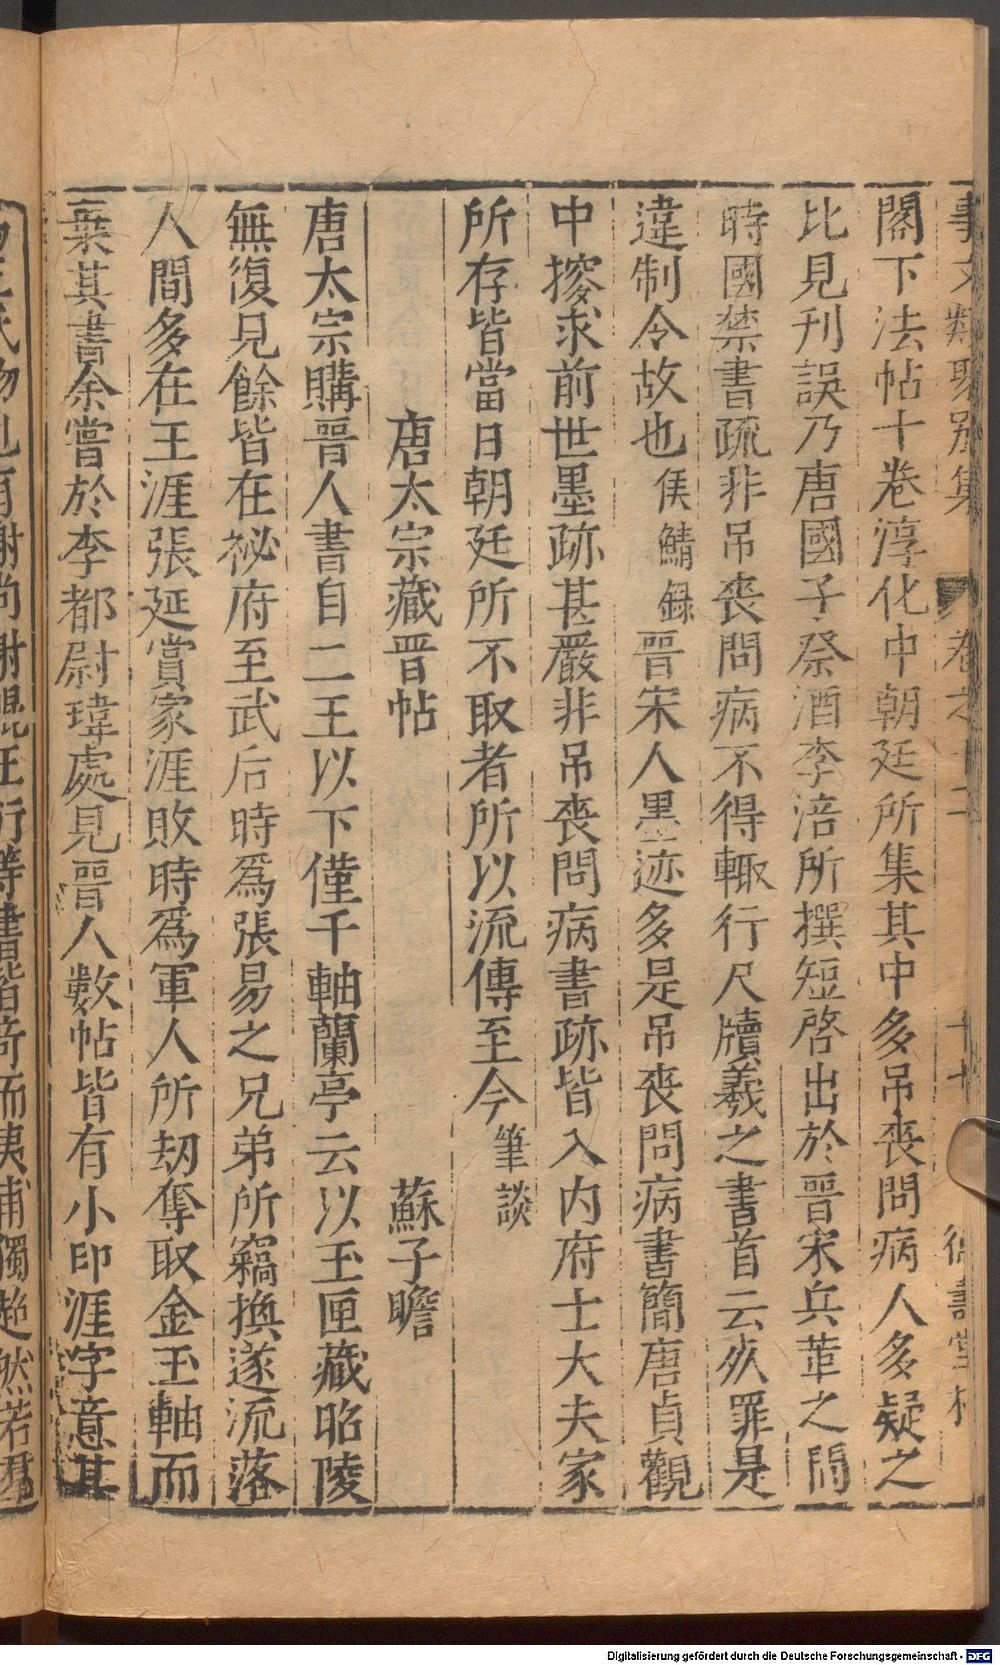 事文類聚別集 卷之十二 十七 德壽堂梓
閣下法帖十卷淳化中朝廷所集其中多吊喪問病人多疑之
比見刊誤乃唐國子祭酒李涪所撰短啓出於晉宋兵革之間
時國禁書疏非吊喪問病不得輙行尺牘羲之書首云死罪是
違制令故也 侯鯖録 晉宋人墨迹多是吊喪問病書簡唐貞觀
中搜求前世墨跡甚嚴非吊喪問病書跡皆入内府士大夫家
所存皆當日朝廷所不取者所以流傳至今 筆談
唐太宗藏晉帖 蘇子瞻
唐太宗購晉人書自二王以下僅千軸蘭亭云以玉匣藏昭陵
無復見餘皆在祕府至武后時爲張易之兄弟所竊換遂流落
人間多在王涯張延賞家涯敗時爲軍人所刼奪取金玉軸而
棄其書余嘗於李都尉瑋處見晉人數帖皆有小印涯字意其
謝尚謝鯤王衍等書皆奇而夷甫獨超然若羣
Digitalisierung gefördert durch die Deutsche Forschungsgemeinschaft - DFG